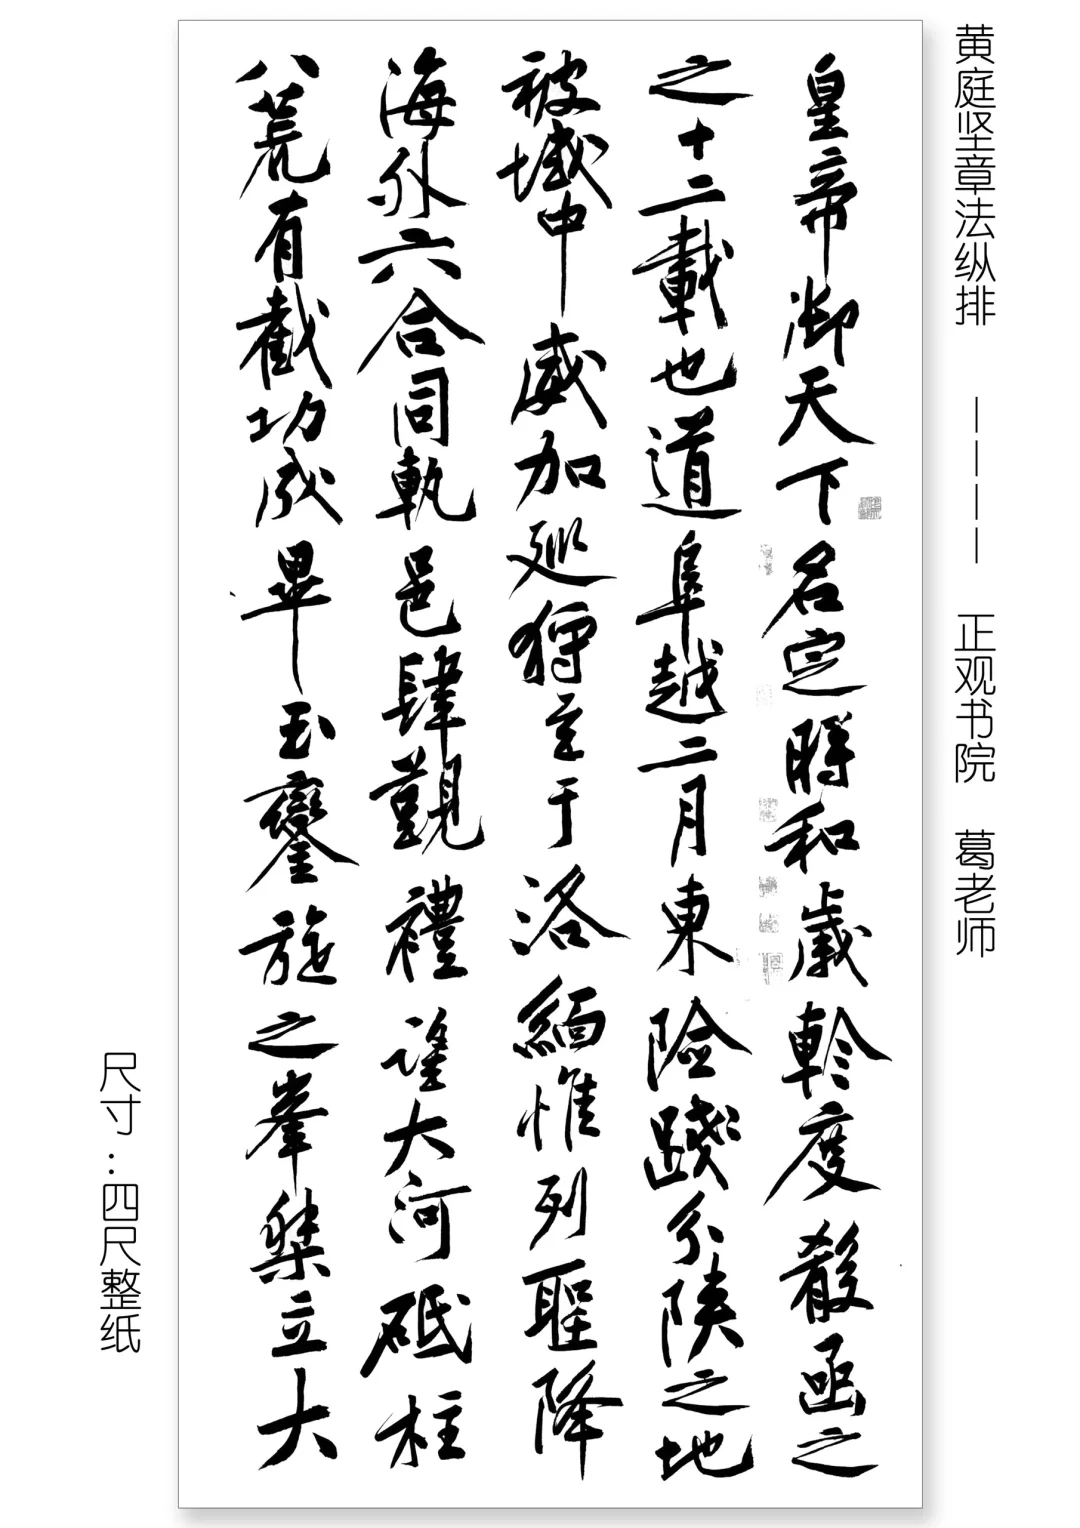 黄庭坚章法纵排 ———— 正观书院 葛老师
皇帝御天下名定時和歲軫度殽函之
之十二載也道阜越二月東險踐分陝之地
被域中威加巡狩至于洛緬惟列聖降
海外六合同軌邑肆覲禮望大河砥柱
八荒有截功成畢玉鑾旋之峯桀立大
尺寸：四尺整纸